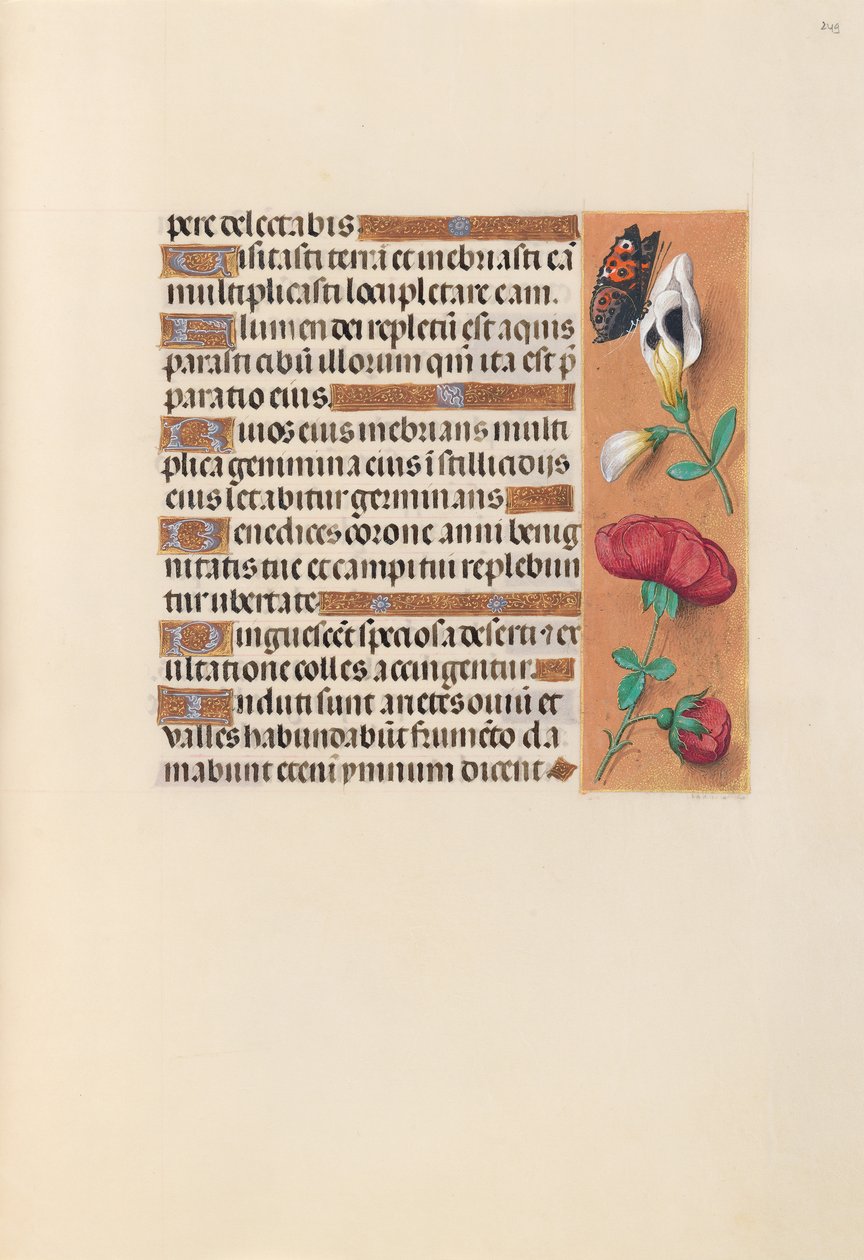 249
pere delectabis.
Uisitasti terrā et inebriasti eā
multiplicasti locupletare eam.
Flumen dei repletū est aquis
parasti cibū illorum qm̄ ita est p̄
paratio eius.
Riuos eius inebrians multi
plica genimina eius ī stillicidijs
eius letabitur germinans.
Benedices corone anni benig
nitatis tue et campi tui replebun
tur ubertate
Pinguescēt speciosa deserti ⁊ ex
ultatione colles accingentur.
Induti sunt arietes ouiū et
valles habundabūt frumēto cla
mabunt etenī ymnum dicent